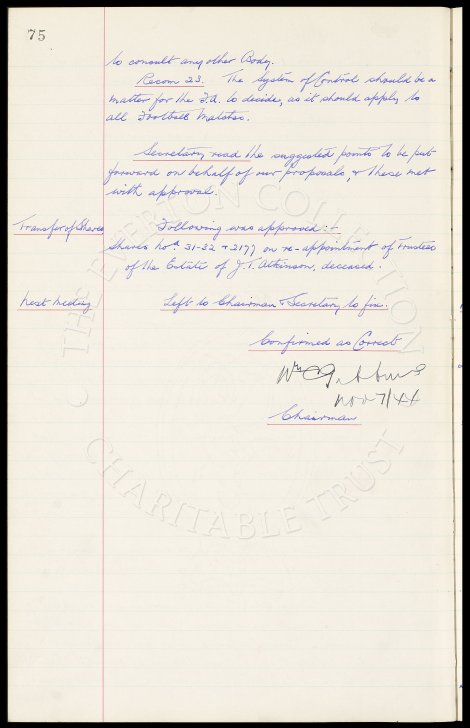 75
to consult any other Body.
Recom 23. The System of Control should be a
matter for the F.A. to decide, as it should apply to
all Football Matches.
Secretary read the suggested points to be put
forward on behalf of our proposals, & these met
with approval.
Transfer of Shares
Following was approved :-
Shares nos 31-32 & 2177 on re-appointment of Trustees
of the Estate of J.T. Atkinson, deceased.
Next Meeting
Left to Chairman & Secretary to fix.
Confirmed as Correct
Wm C Gibbins
Nov 7/44
Chairman
THE EVERTON COLLECTION
CHARITABLE TRUST